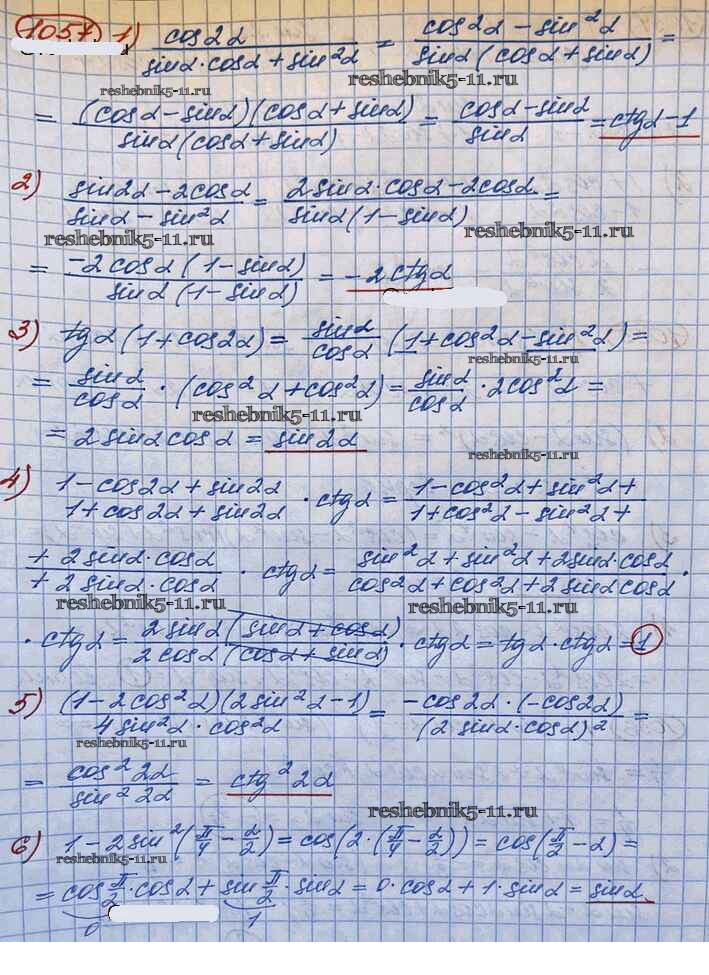 1057) 1) cos2α / (sinα·cosα + sin²α) = (cos²α – sin²α) / (sinα(cosα + sinα)) =
reshebnik5-11.ru reshebnik5-11.ru
= (cosα – sinα)(cosα + sinα) / (sinα(cosα + sinα)) = (cosα – sinα) / sinα = ctgα – 1
2) (sin2α – 2cosα) / (sinα – sin²α) = (2sinα·cosα – 2cosα) / (sinα(1 – sinα)) =
reshebnik5-11.ru reshebnik5-11.ru
= –2cosα(1 – sinα) / (sinα(1 – sinα)) = –2ctgα
3) tgα(1 + cos2α) = sinα / cosα (1 + cos²α – sin²α) =
reshebnik5-11.ru
= sinα / cosα · (cos²α + cos²α) = sinα / cosα · 2cos²α =
reshebnik5-11.ru
= 2sinαcosα = sin2α
reshebnik5-11.ru
4) (1 – cos2α + sin2α) / (1 + cos2α + sin2α) · ctgα = (1 – cos²α + sin²α +) / (1 + cos²α – sin²α +)
(+ 2sinα·cosα) / (+ 2sinα·cosα) · ctgα = (sin²α + sin²α + 2sinα·cosα) / (cos²α + cos²α + 2sinαcosα) ·
reshebnik5-11.ru reshebnik5-11.ru
· ctgα = 2sinα(sinα + cosα) / (2cosα(cosα + sinα)) · ctgα = tgα·ctgα = 1
reshebnik5-11.ru
5) (1 – 2cos²α)(2sin²α – 1) / (4sin²α·cos²α) = –cos2α·(–cos2α) / (2sinα·cosα)² =
reshebnik5-11.ru
= cos²2α / sin²2α = ctg²2α
reshebnik5-11.ru
6) 1 – 2sin²(π/4 – α/2) = cos(2·(π/4 – α/2)) = cos(π/2 – α) =
reshebnik5-11.ru
= cos π/2 · cosα + sin π/2 · sinα = 0·cosα + 1·sinα = sinα.
0 1